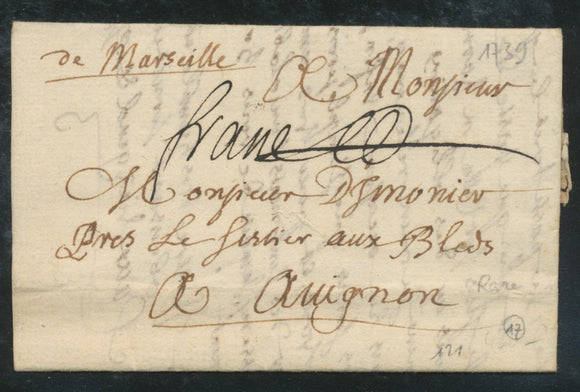 1739
de Marseille
A Monsieur
franc
Monsieur Dhmonier
Pres Le Sestier aux Bleds
A Auignon
Rare
17
121